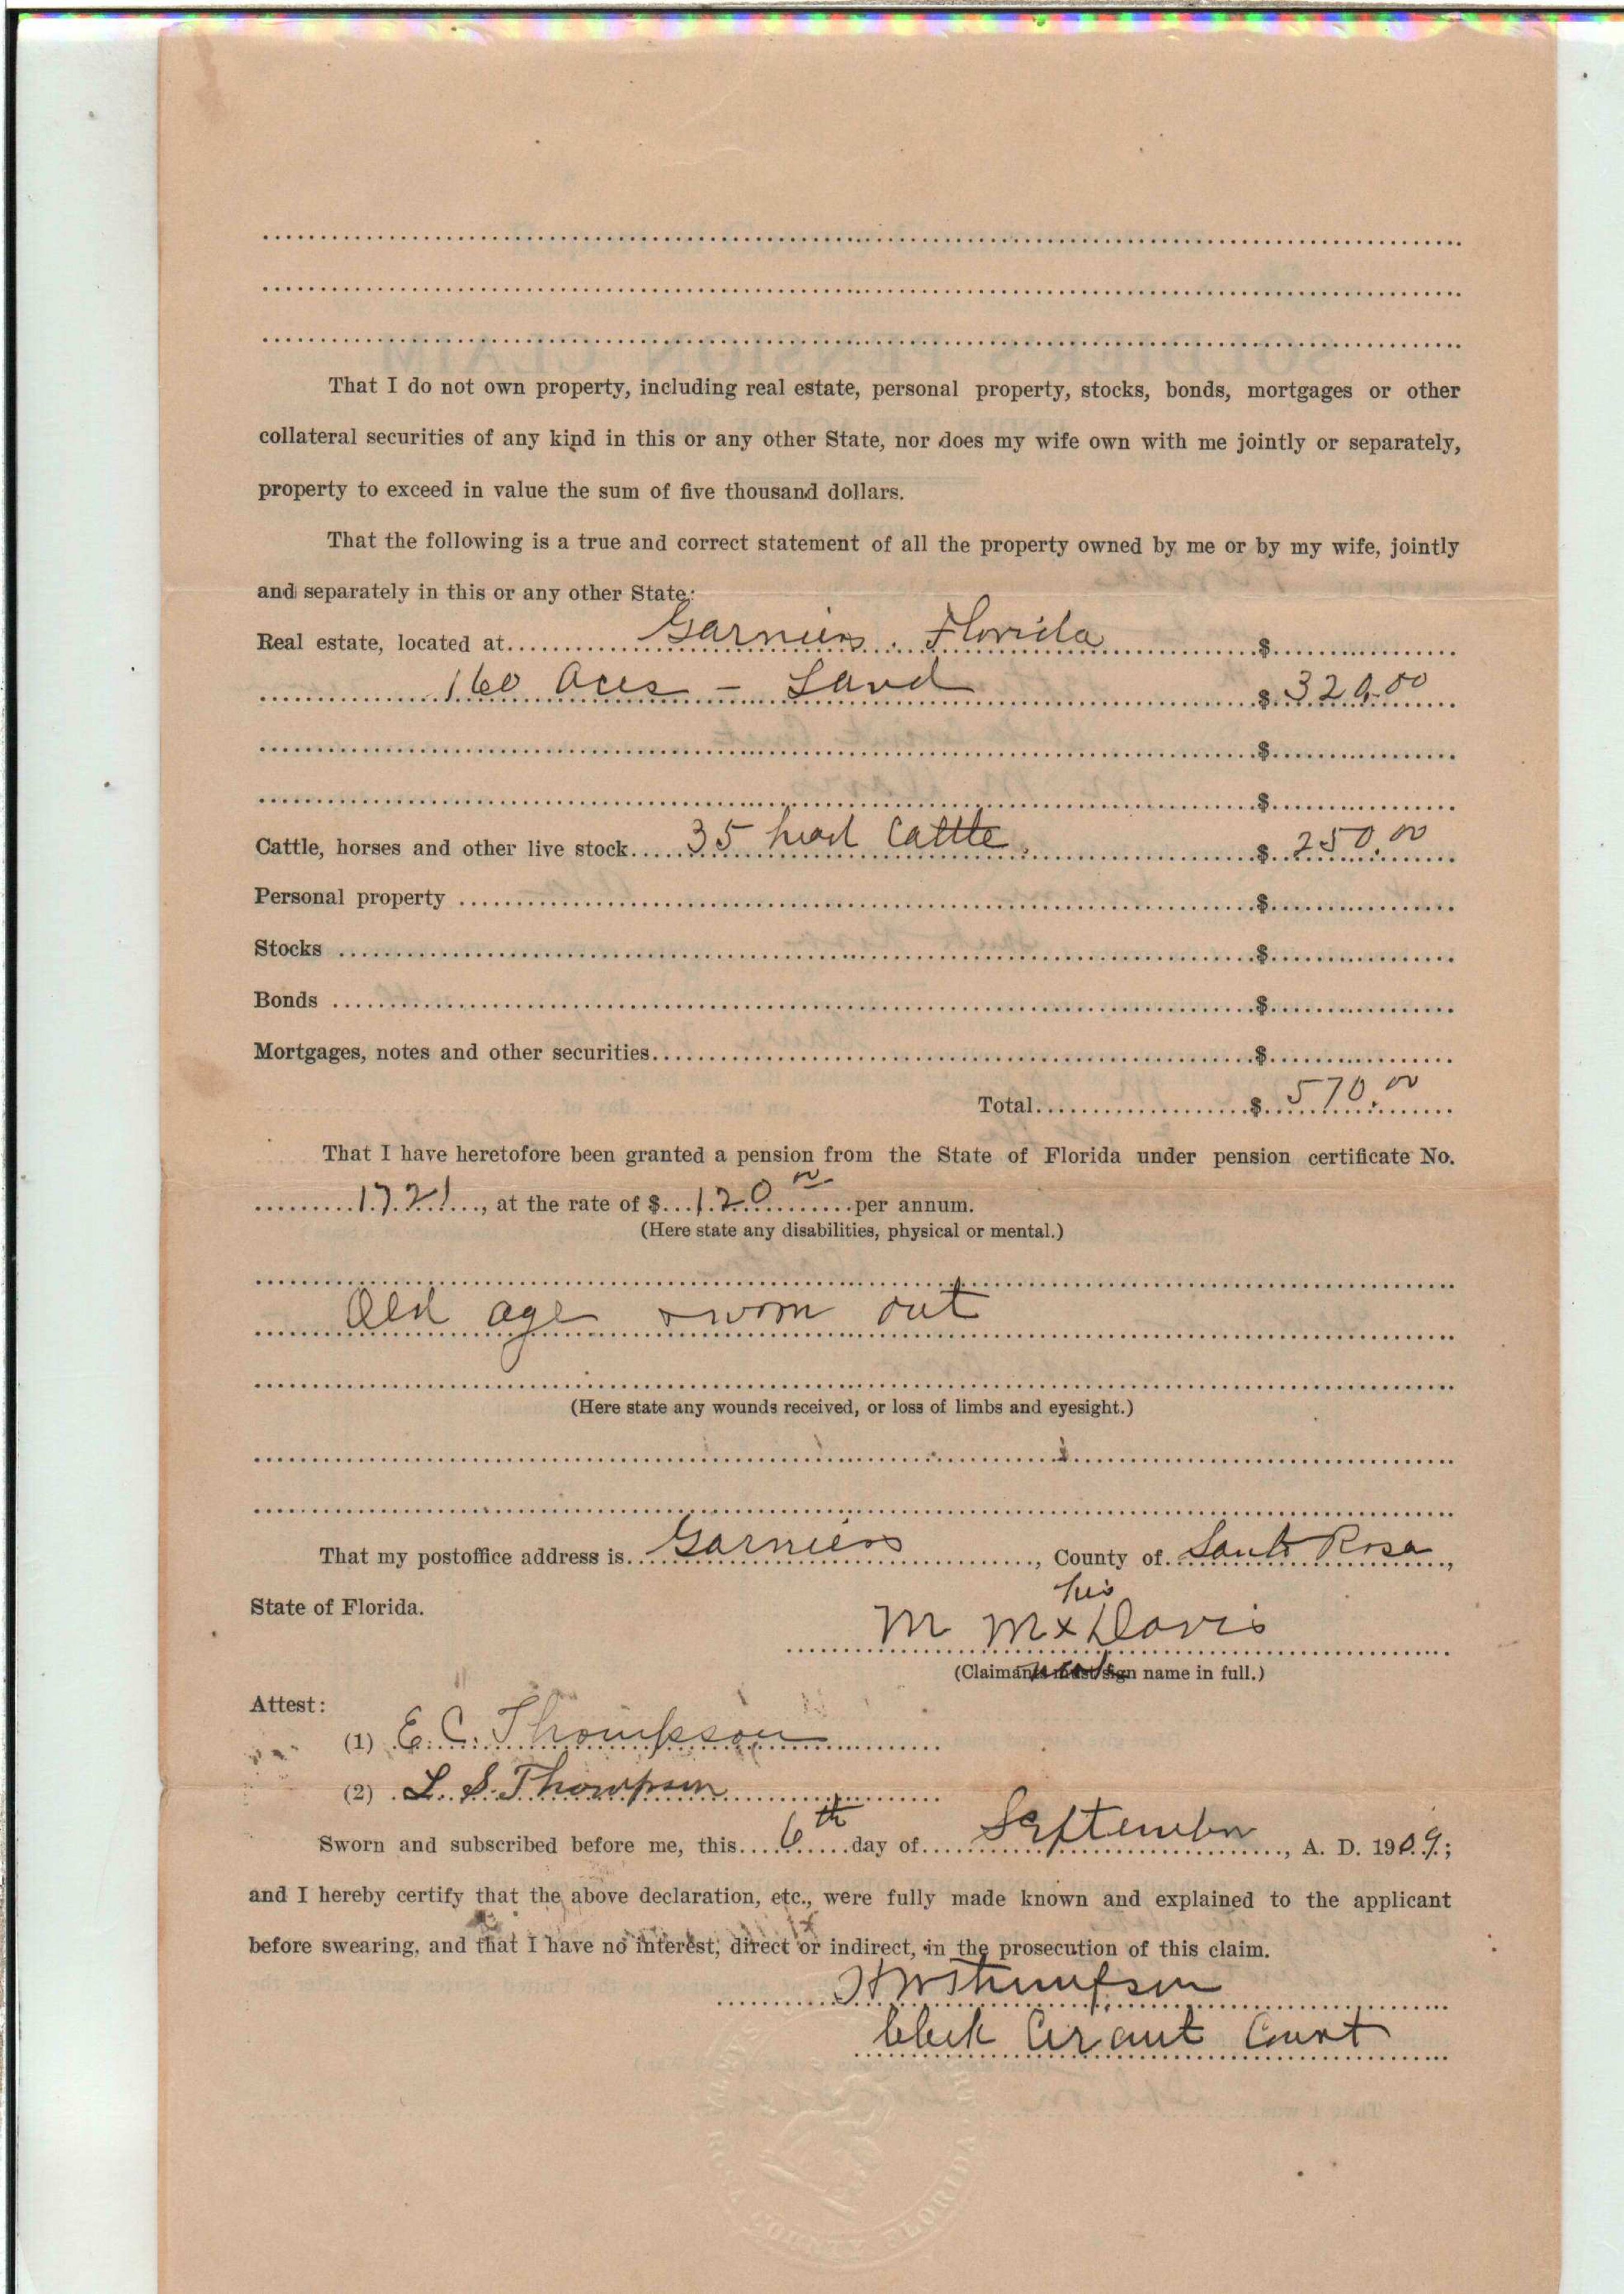 That I do not own property, including real estate, personal property, stocks, bonds, mortgages or other
collateral securities of any kind in this or any other State, nor does my wife own with me jointly or separately,
property to exceed in value the sum of five thousand dollars.
That the following is a true and correct statement of all the property owned by me or by my wife, jointly
and separately in this or any other State:
Real estate, located at Garniers. Florida $
160 Aces - Land $ 320.00
$
$
Cattle, horses and other live stock 35 head Cattle. $ 250.00
Personal property $
Stocks $
Bonds $
Mortgages, notes and other securities $
Total $ 570.00
That I have heretofore been granted a pension from the State of Florida under pension certificate No.
1721, at the rate of $ 120 per annum.
(Here state any disabilities, physical or mental.)
Old age & worn out
(Here state any wounds received, or loss of limbs and eyesight.)
That my postoffice address is Garniers, County of Santa Rosa,
State of Florida.
his
M M x Davis
mark
(Claimants must sign name in full.)
Attest:
(1) E. C. Thompson
(2) L. S. Thompson
Sworn and subscribed before me, this 6th day of September, A. D. 1909;
and I hereby certify that the above declaration, etc., were fully made known and explained to the applicant
before swearing, and that I have no interest, direct or indirect, in the prosecution of this claim.
H W Thompson
Clerk Circuit Court
COUNTY FLORIDA